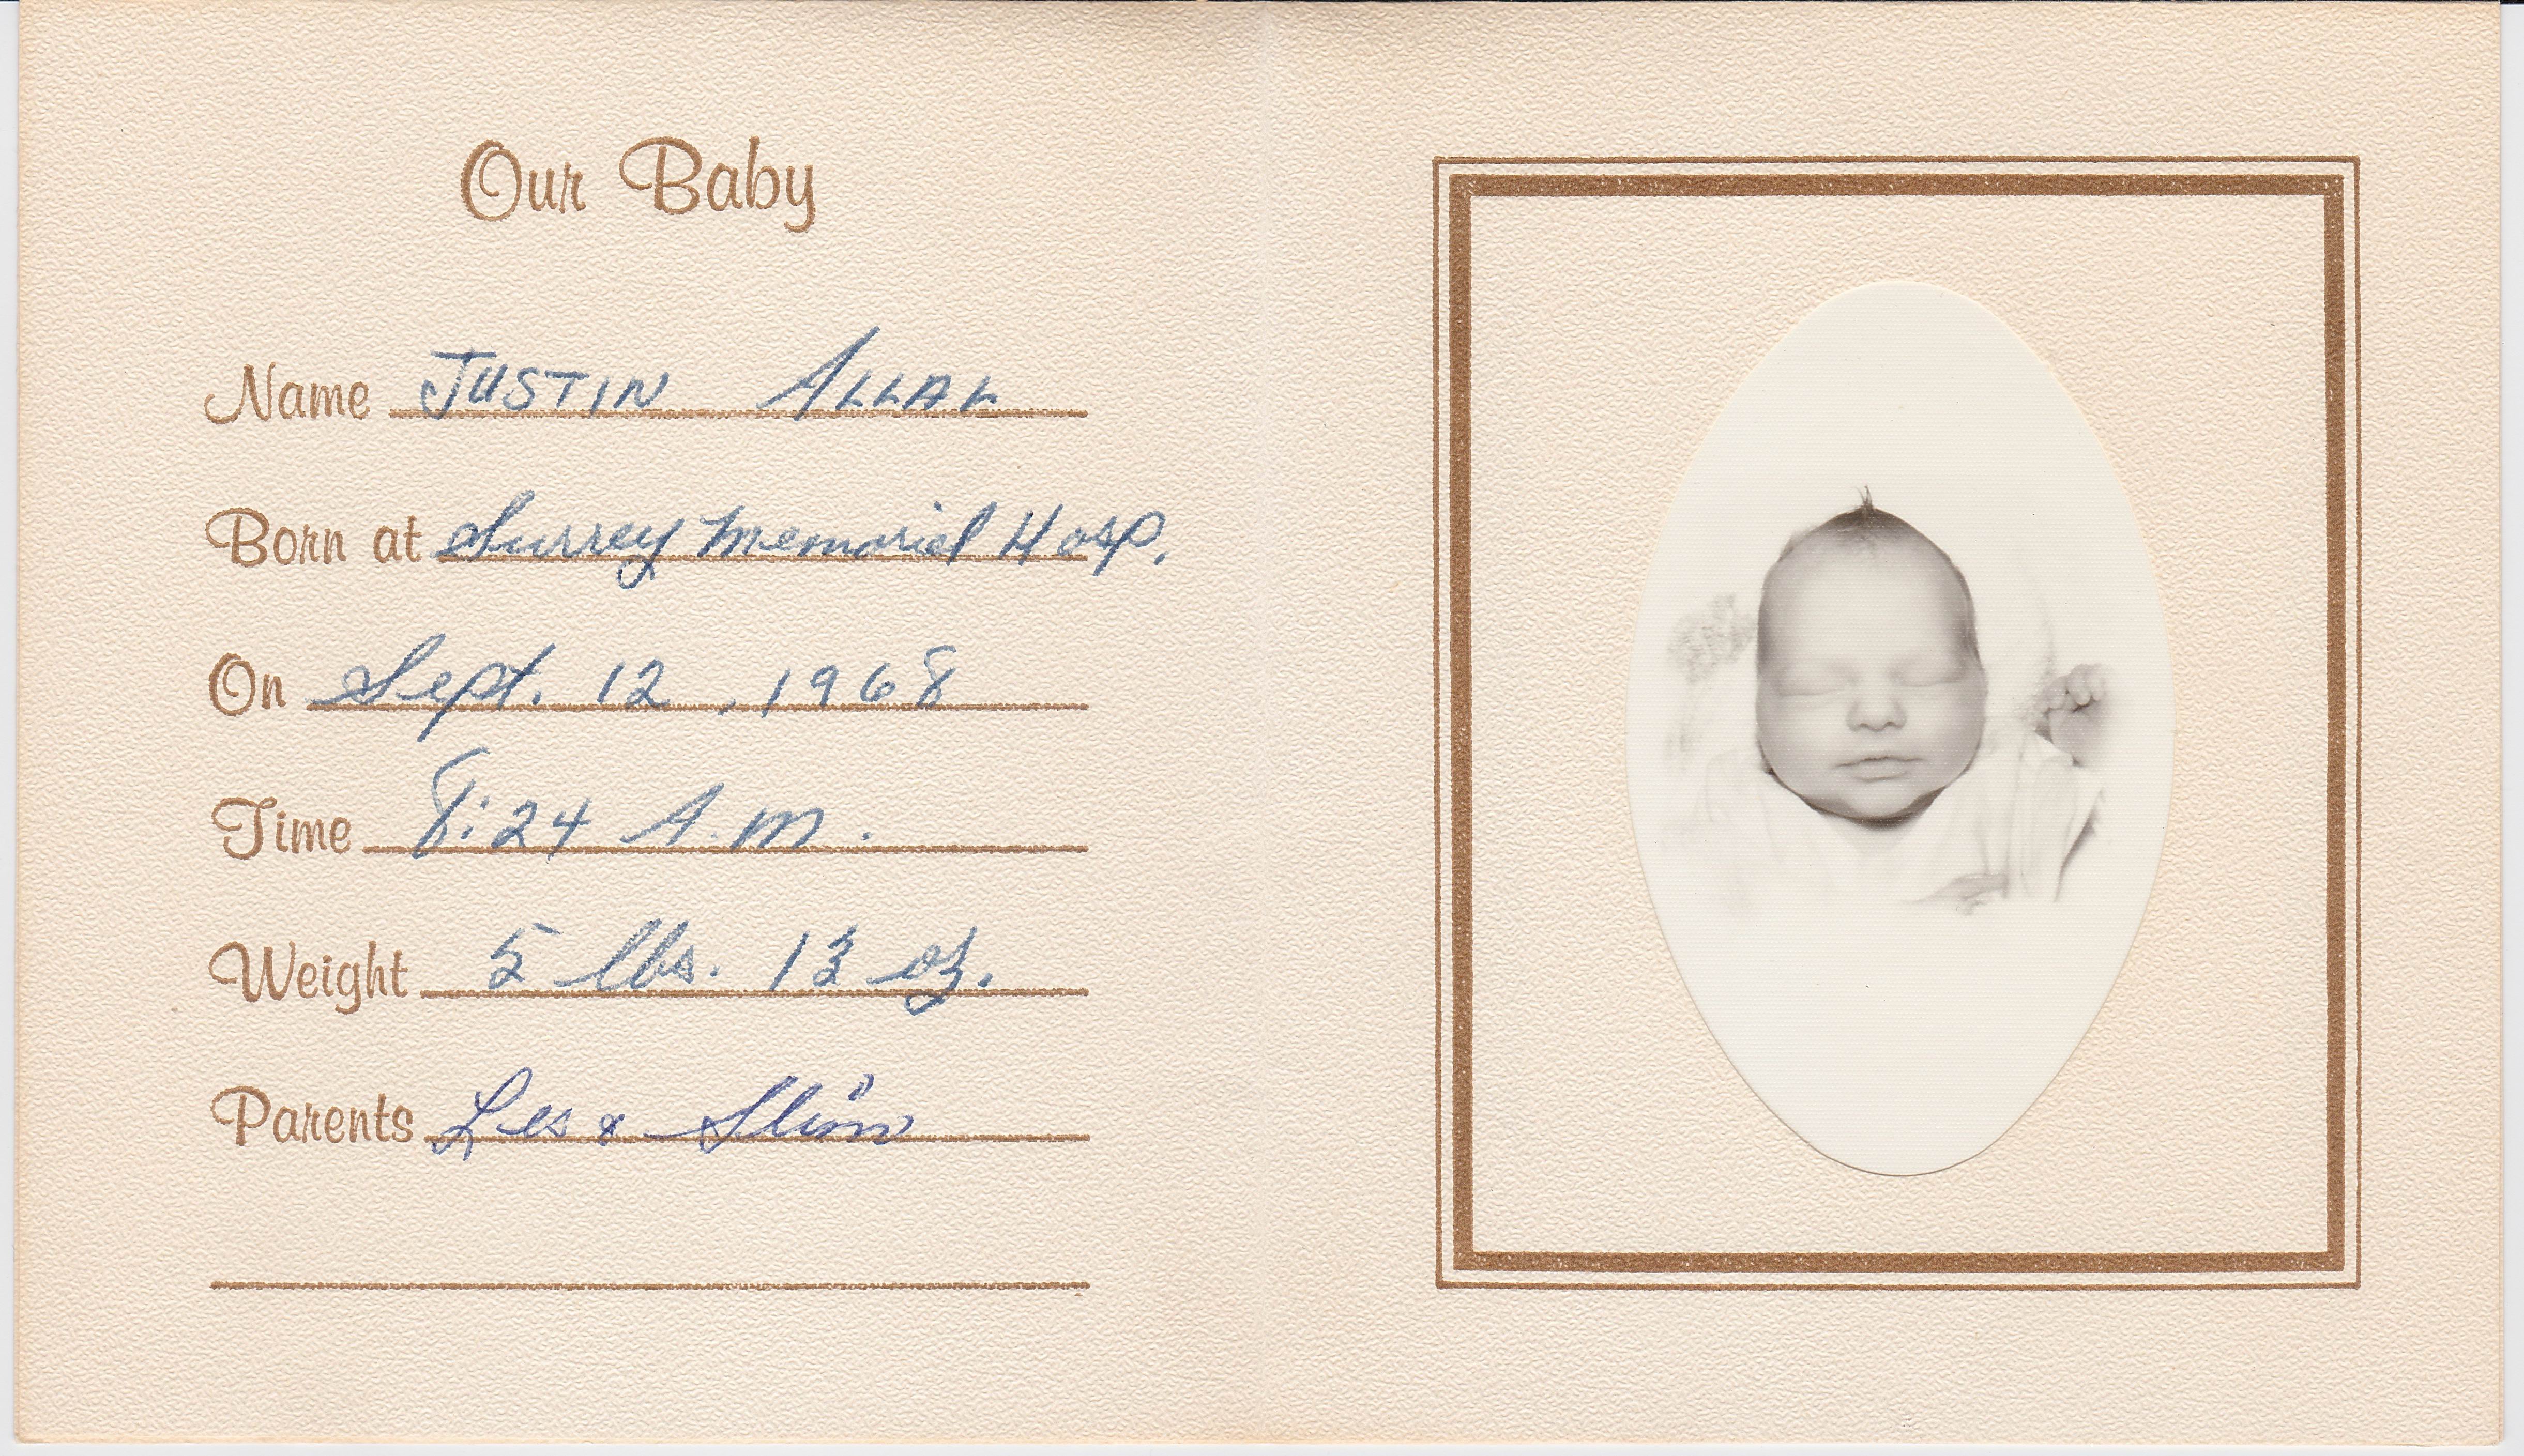 Our Baby
Name JUSTIN ALLAN
Born at Surrey Memorial Hosp.
On Sept. 12, 1968
Time 8:24 A.M.
Weight 5 lbs. 13 oz.
Parents Les &